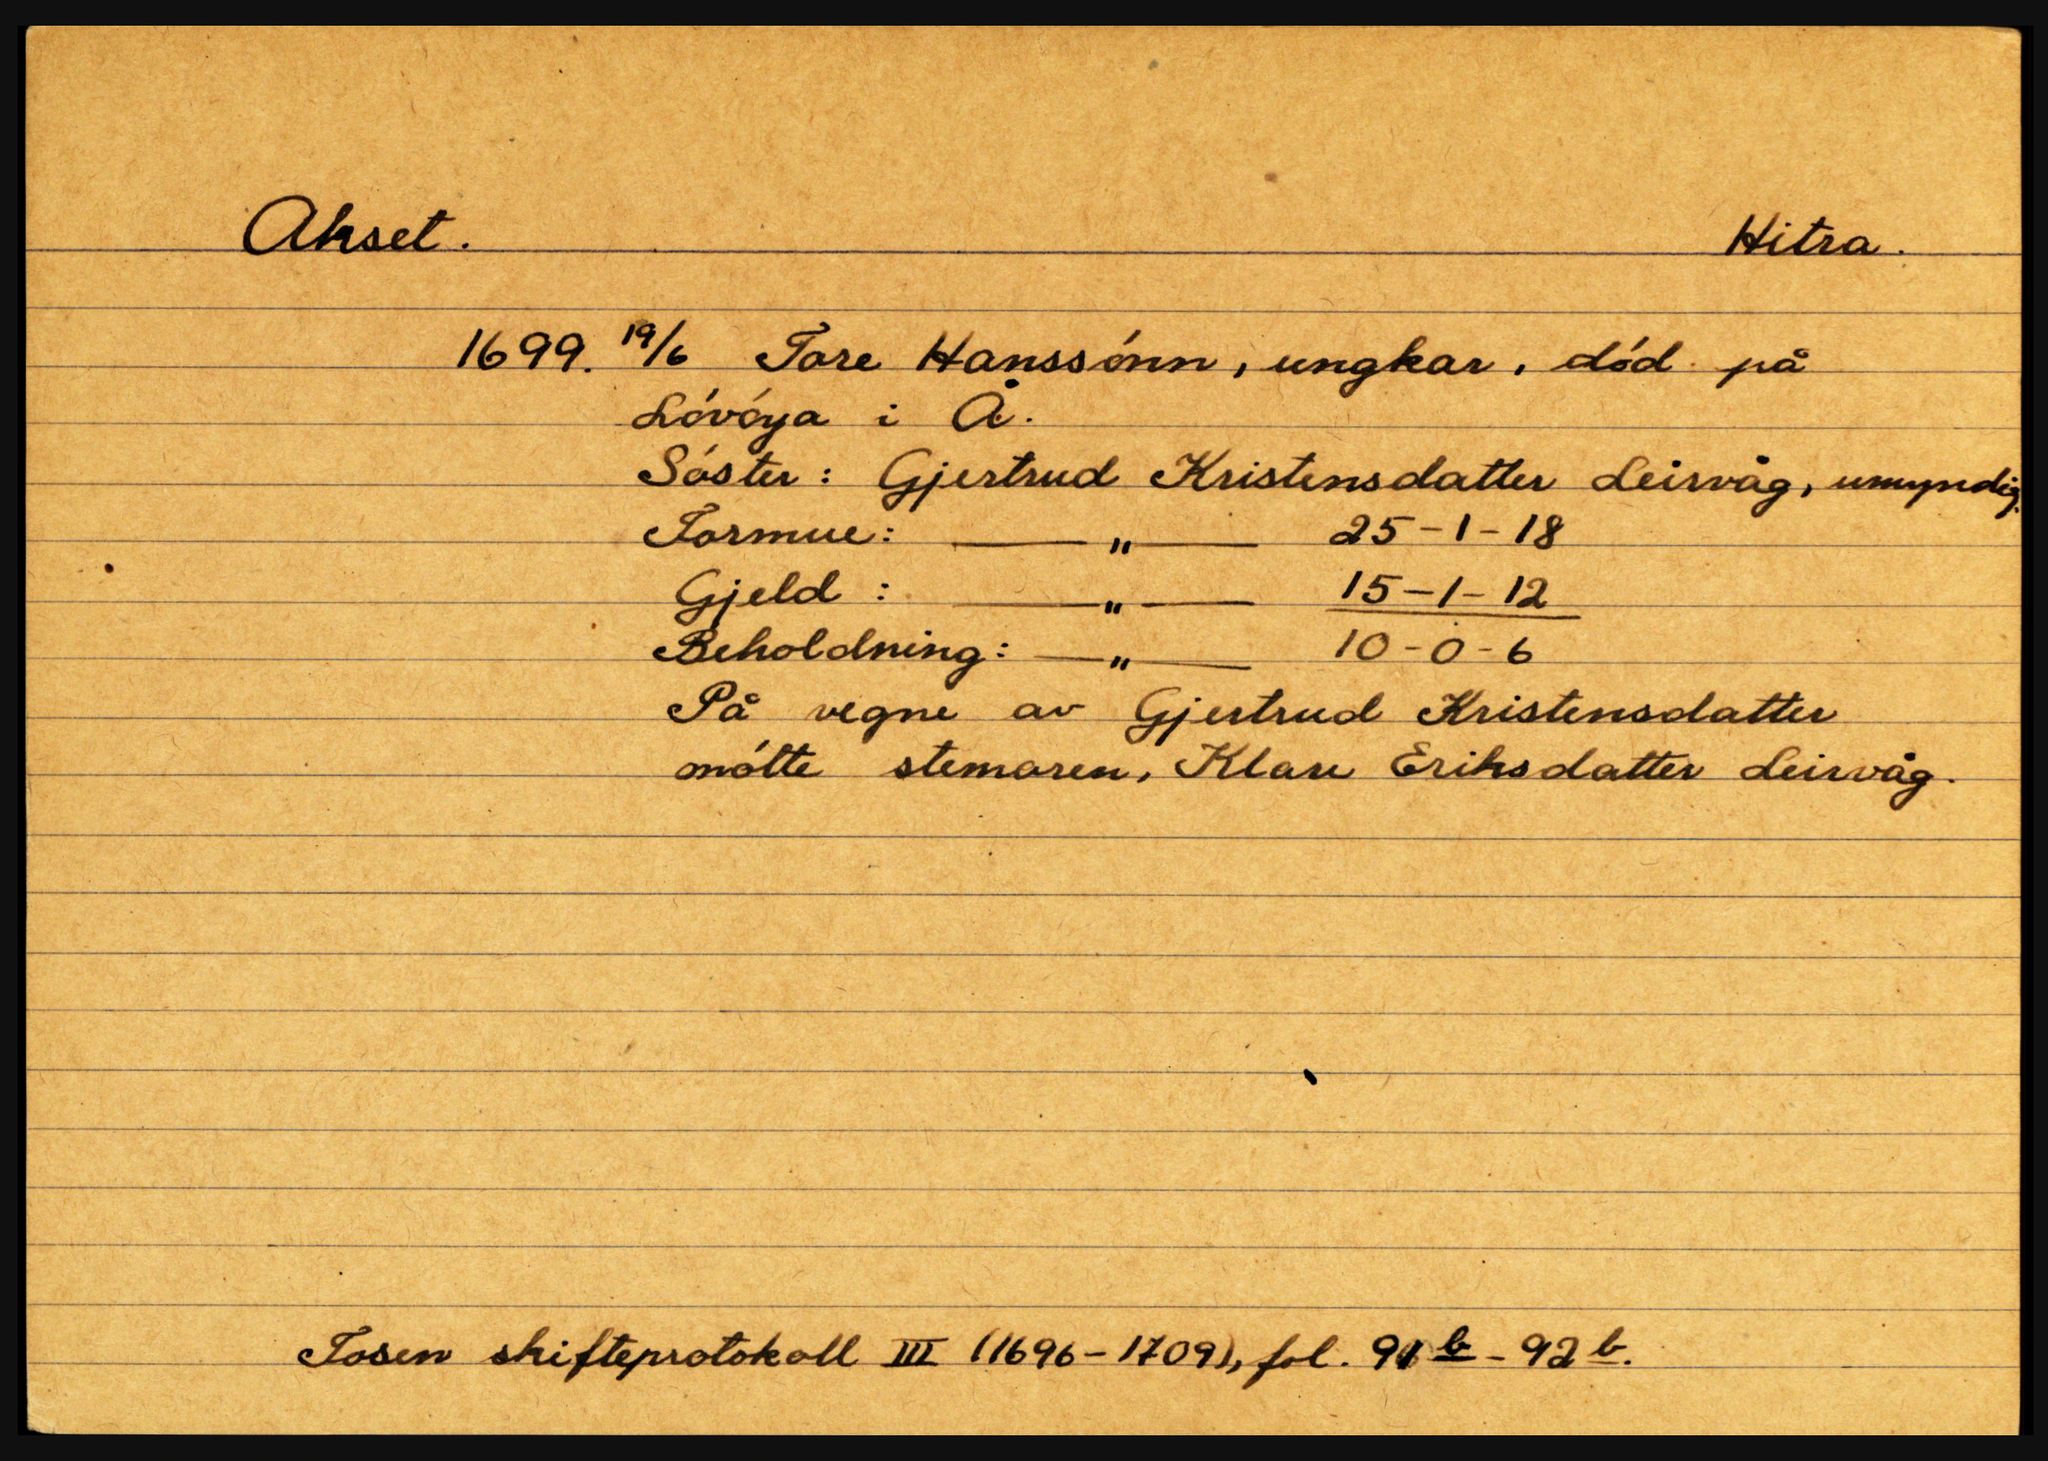 Akset. Hitra.
1699. 19/6 Tore Hanssónn, ungkar, dód på
Lóvóya i Å.
Sóster: Gjertrud Kristensdatter Leirvåg, umyndig.
Formue: —— " —— 25-1-18
Gjeld : —— " —— 15-1-12
Beholdning: — " —— 10-0-6
På vegne av Gjertrud Kristensdatter
mótte stemoren, Klare Eriksdatter Leirvåg.
Fosen skifteprotokoll III (1696-1709), fol. 91b - 92b.